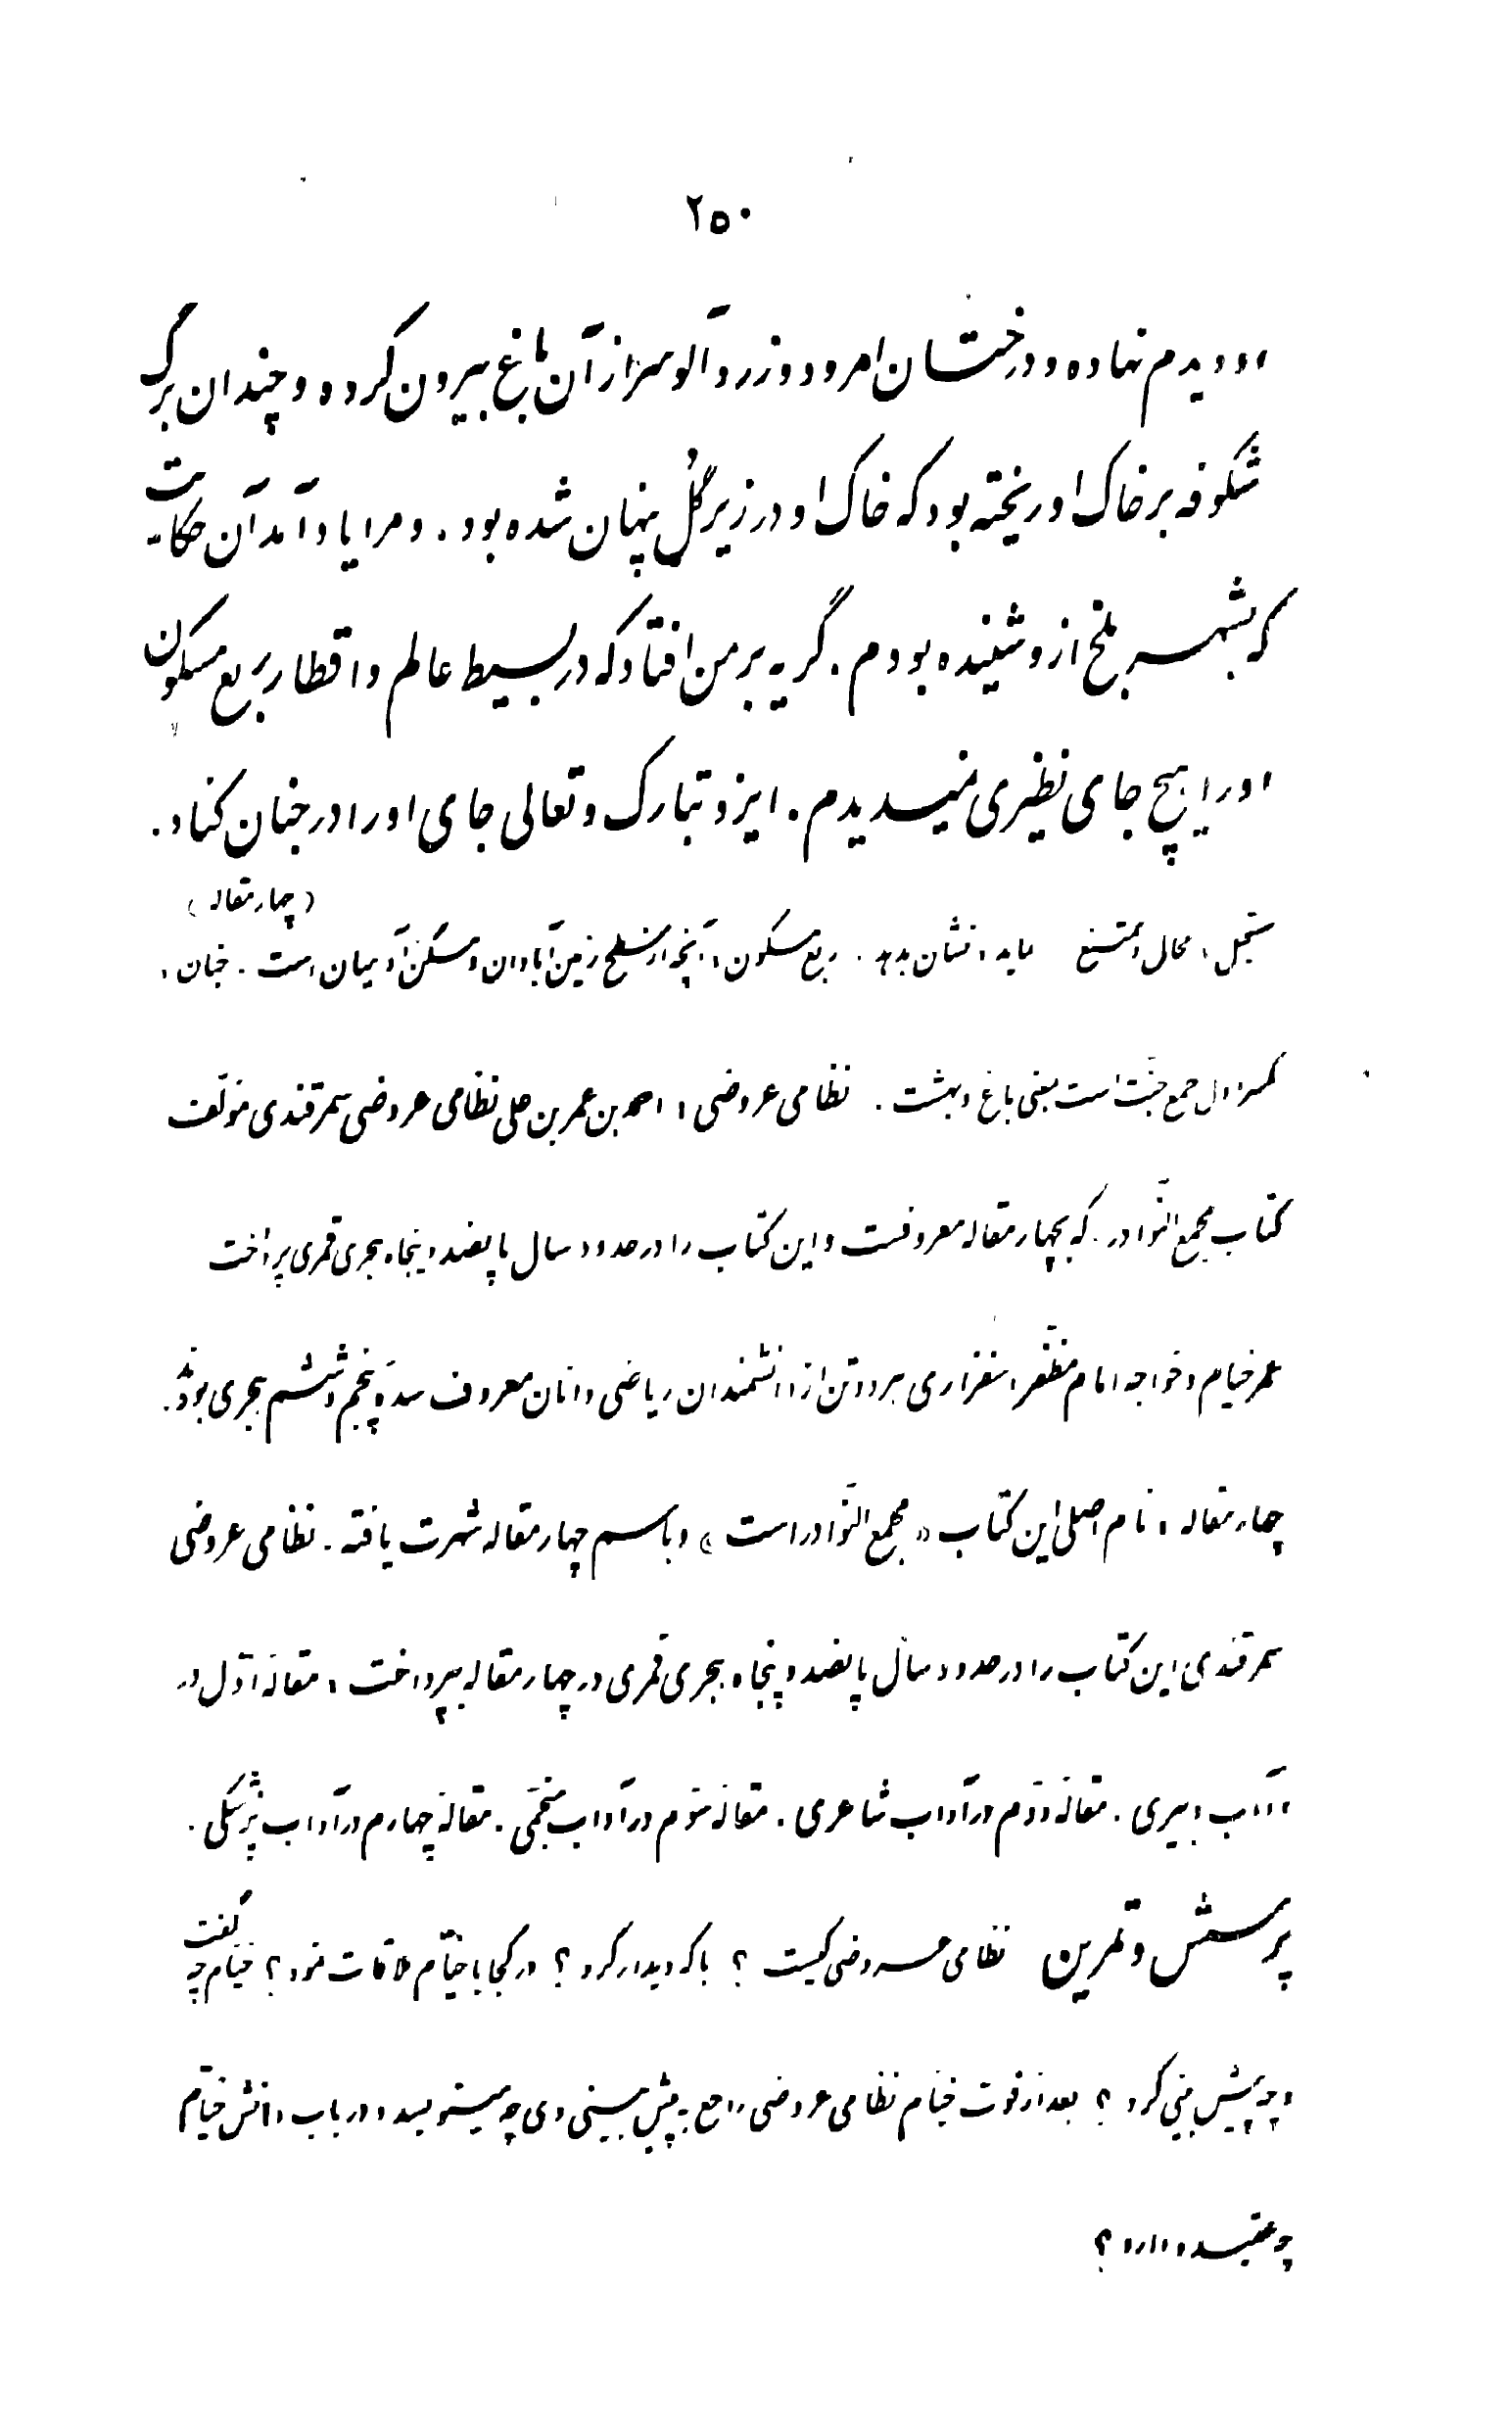 ۲۵۰
او دیدم نهاده و درختان امرود و زردآلو سر از آن باغ بیرون کرده و چندان برگ
شکوفه بر خاک او ریخته بود که خاک او در زیر گُل پنهان شده بود. و مرا یاد آمد آن حکایت
که بشهر بلخ ازو شنیده بودم. گریه بر من افتاد که در بسیط عالم و اقطار ربع مسکون
او را هیچ جای نظیری نمیدیدم. ایزد تبارک و تعالی جای او را در جنان کناد.
(چهار مقاله)
مستحیل، محال و ممتنع نماید، نشان بدهد. ربع مسکون، آنچه از سطح زمین آبادان و مسکن آدمیان است. جنان،
بکسر اول جمع جنّت است یعنی باغ و بهشت. نظامی عروضی، احمد بن عمر بن علی نظامی عروضی سمرقندی مؤلّف
کتاب مجمع النّوادر. که بچهار مقاله معروفست و این کتاب را در حدود سال پانصد و پنجاه هجری قمری پرداخت
عمر خیام و خواجه امام مظفّر اسفزاری هر دو تن از دانشمندان ریاضی دانان معروف سدهٔ پنجم و ششم هجری بودند.
چهار مقاله، نام اصلی این کتاب «مجمع النّوادر است» و باسم چهار مقاله شهرت یافته. نظامی عروضی
سمرقندی این کتاب را در حدود سال پانصد و پنجاه هجری قمری در چهار مقاله بپرداخت، مقالهٔ اوّل در
آداب دبیری. مقالهٔ دوّم در آداب شاعری. مقالهٔ سوّم در آداب منجّمی. مقالهٔ چهارم در آداب پزشکی.
پرسش و تمرین نظامی عروضی کیست؟ با که دیدار کرد؟ در کجا با خیّام ملاقات نمود؟ خیّام چه گفت
و چه پیش بینی کرد؟ بعد از فوت خیّام نظامی عروضی راجع به پیش بینی وی چه مینویسد و در باب دانش خیّام
چه عقیده دارد؟